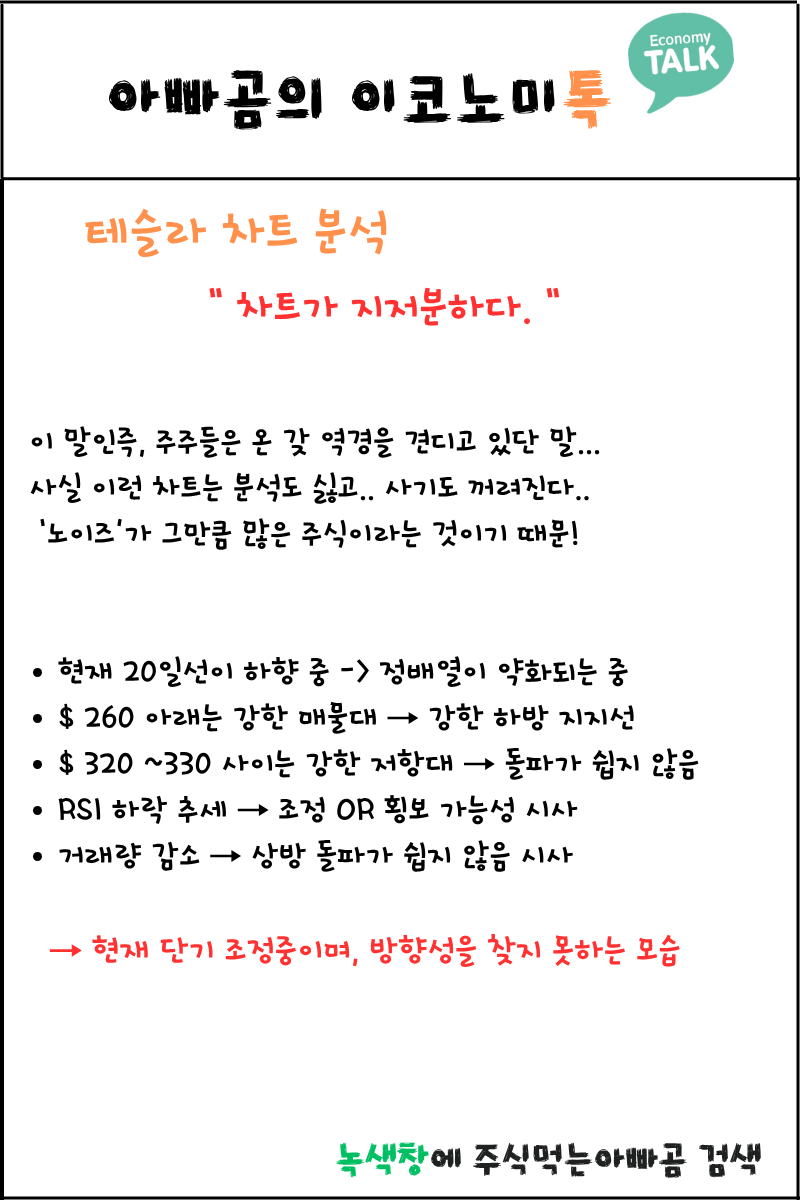 아빠곰의 이코노미톡
Economy
TALK
테슬라 차트 분석
" 차트가 지저분하다. "
이 말인즉, 주주들은 온 갖 역경을 견디고 있단 말...
사실 이런 차트는 분석도 싫고.. 사기도 꺼려진다..
'노이즈'가 그만큼 많은 주식이라는 것이기 때문!
• 현재 20일선이 하향 중 -> 정배열이 약화되는 중
• $ 260 아래는 강한 매물대 → 강한 하방 지지선
• $ 320 ~330 사이는 강한 저항대 → 돌파가 쉽지 않음
• RSI 하락 추세 → 조정 OR 횡보 가능성 시사
• 거래량 감소 → 상방 돌파가 쉽지 않음 시사
→ 현재 단기 조정중이며, 방향성을 찾지 못하는 모습
녹색창에 주식먹는아빠곰 검색